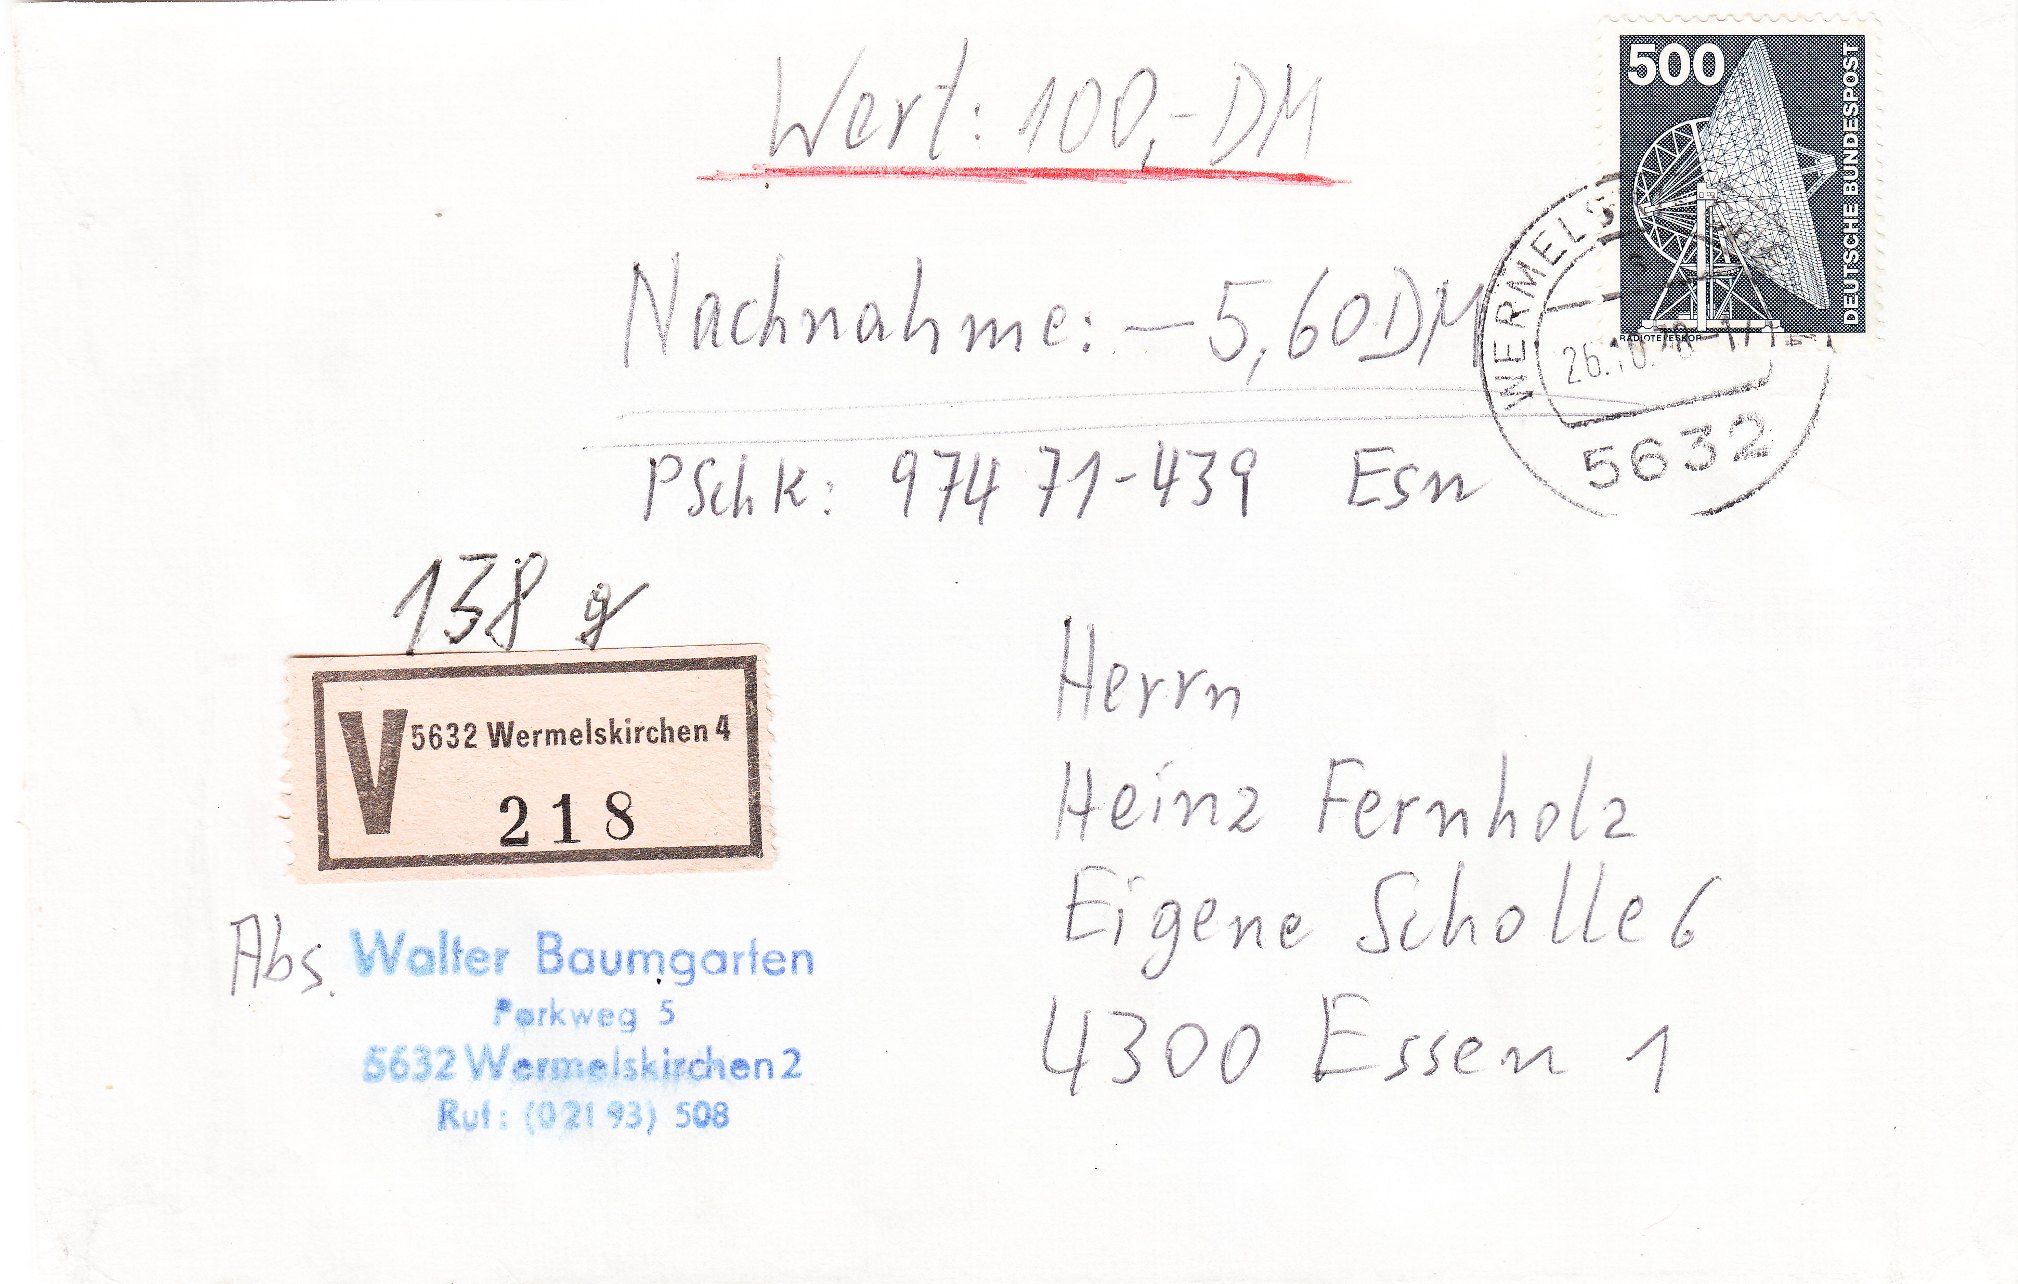 Wert: 100,- DM
500
DEUTSCHE BUNDESPOST
RADIOTELESKOP
Nachnahme: — 5,60 DM
WERMELS
26.10.78-17
5632
PSchK: 974 71-439 Esn
138 g
V 5632 Wermelskirchen 4
218
Herrn
Heinz Fernholz
Eigene Scholle 6
4300 Essen 1
Abs. Walter Baumgarten
Parkweg 5
5632 Wermelskirchen 2
Ruf: (0 21 93) 508